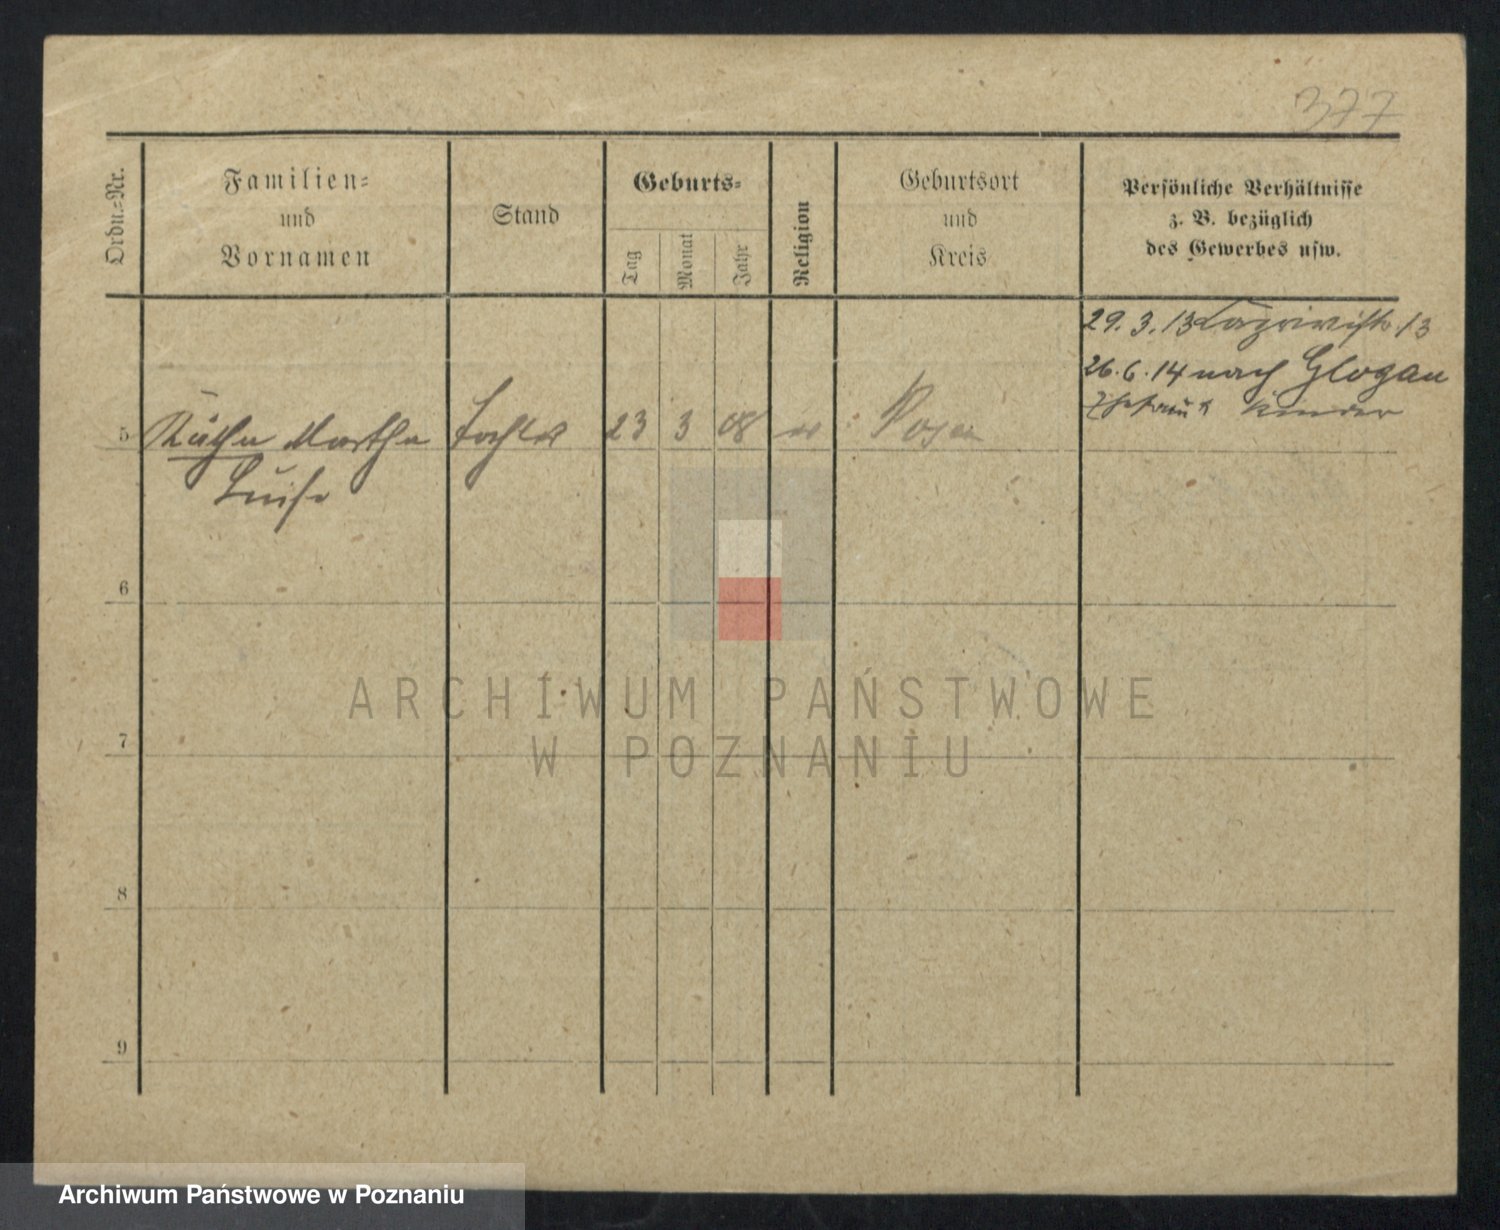 377
Ordn.-Nr.
Familien-
und
Vornamen
Stand
Geburts-
Tag
Monat
Jahr
Religion
Geburtsort
und
Kreis
Persönliche Verhältnisse
z. B. bezüglich
des Gewerbes usw.
29.3.13
26.6.14 nach Glogau
Kinder
5 Käthe Martha Tochter 23 3 08 Posen
Luise
6
7
8
9
ARCHIWUM PAŃSTWOWE
W POZNANIU
Archiwum Państwowe w Poznaniu